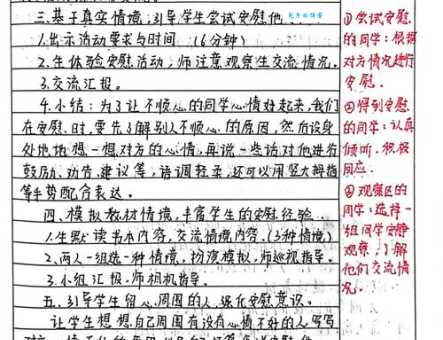 三.基于真实情境,引导学生尝试安慰他.
1.出示活动要求与时间.(6分钟)
2.生体验安慰活动,师注意观察生交流情况.
3.交流汇报.
4.小结:为了让不顺心的同学心情好起来,我们
在安慰时,要先了解别人不顺心的原因,然后设身
处地地想一想对方的心情,再说一些话对他进行
鼓励、劝告、建议等,语调轻柔,还可以用竖大拇指
等手势配合表达。
四.模拟教材情境,丰富学生的安慰经验.
1.生默读书本内容,交流情境内容.(3种情境)
2.两人一组选一种情境,扮演模拟,师巡视指导.
3.小组汇报,师相机指导.
五.引导学生留心周围的人,强化安慰意识。
让学生想想自己周围有没有心情不好的人,写写
①尝试安慰
的同学:根据
对方情况进行
安慰.
②得到安慰
的同学:认真
倾听,积极
回应.
③观察区的
同学:选择一
组同学安静
观察,了解
他们交流情
况.